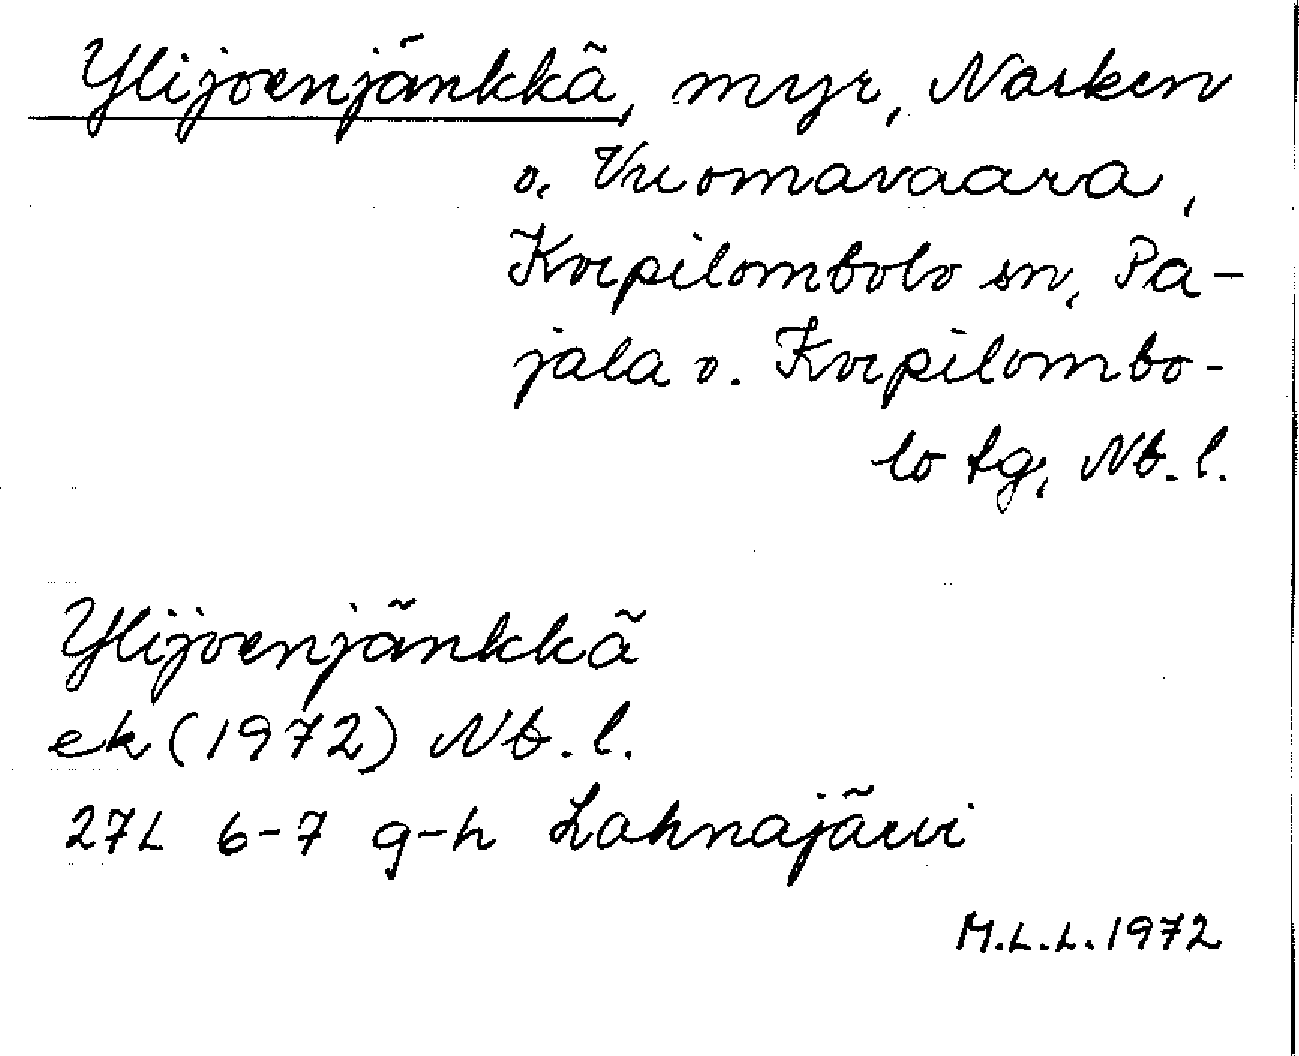 Ylijoenjänkkä, myr, Narken
o. Vuomavaara,
Korpilombolo sn, Pa-
jala o. Korpilombo-
lo tg, Nb. l.
Ylijoenjänkkä
ek (1972) Nb. l.
27L 6-7 g-h Lahnajärvi
M.L.L. 1972